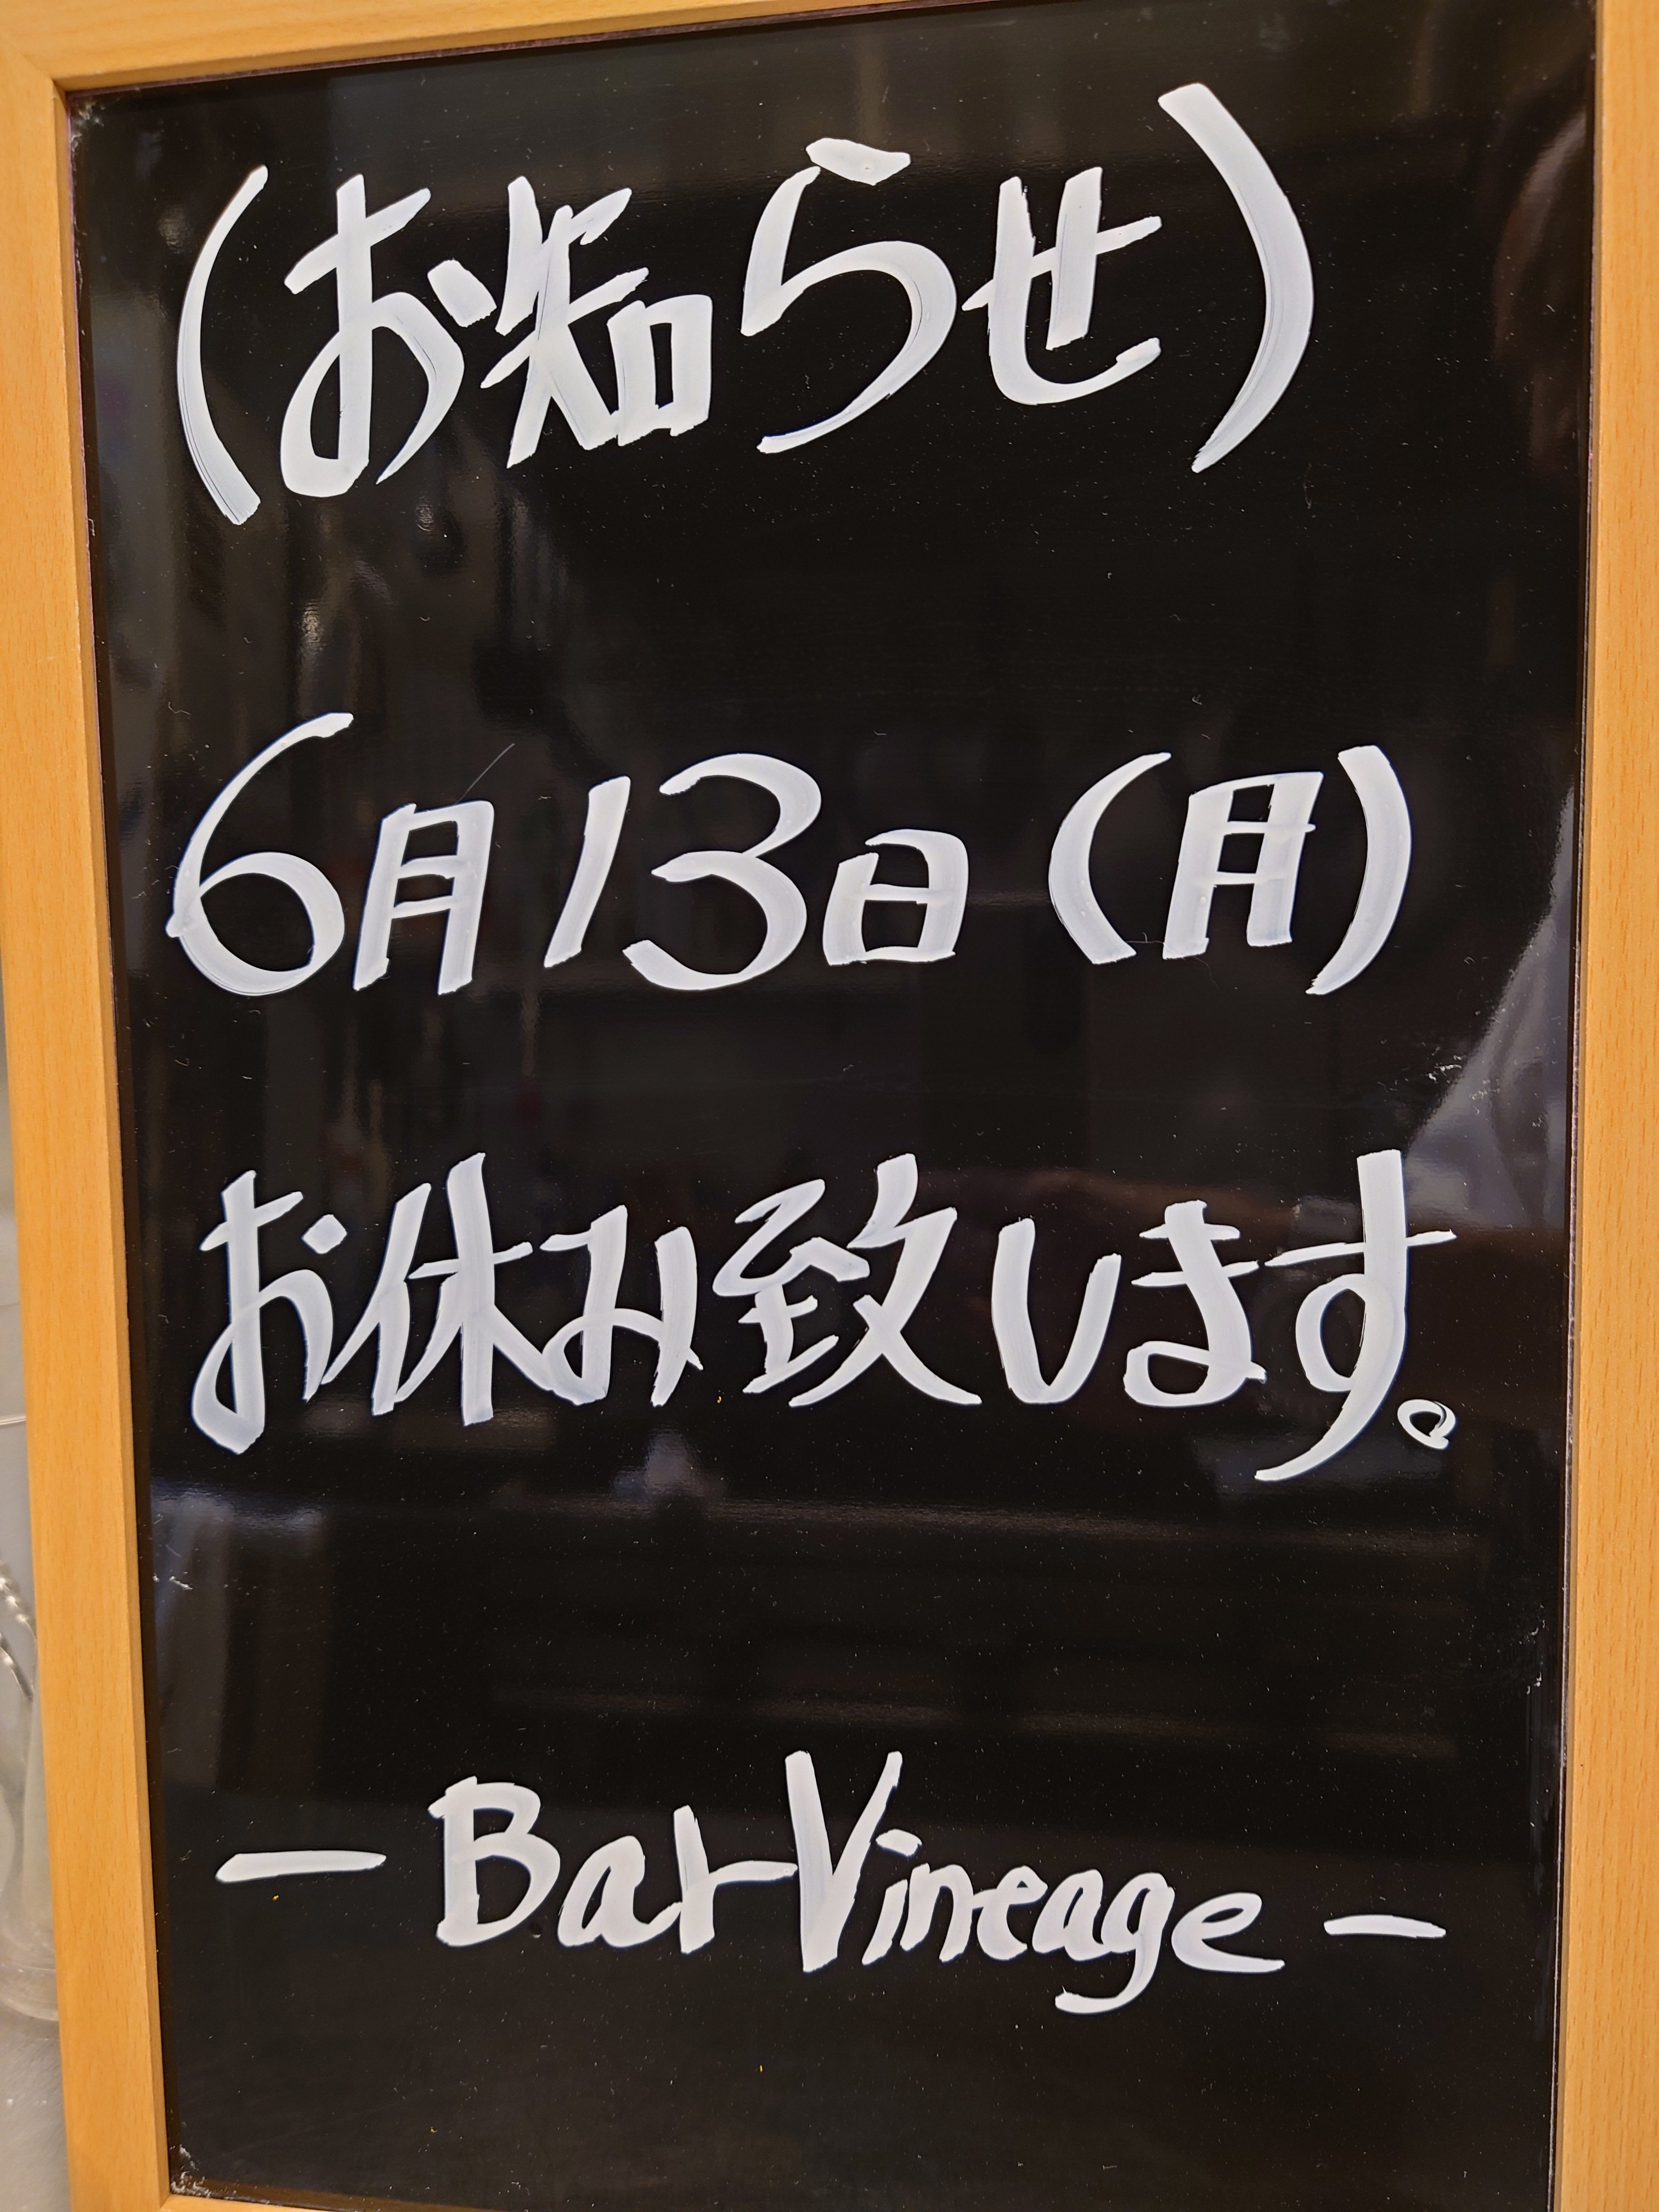 (お知らせ)
6月13日(月)
お休み致します。
ー Bar Vineage ー